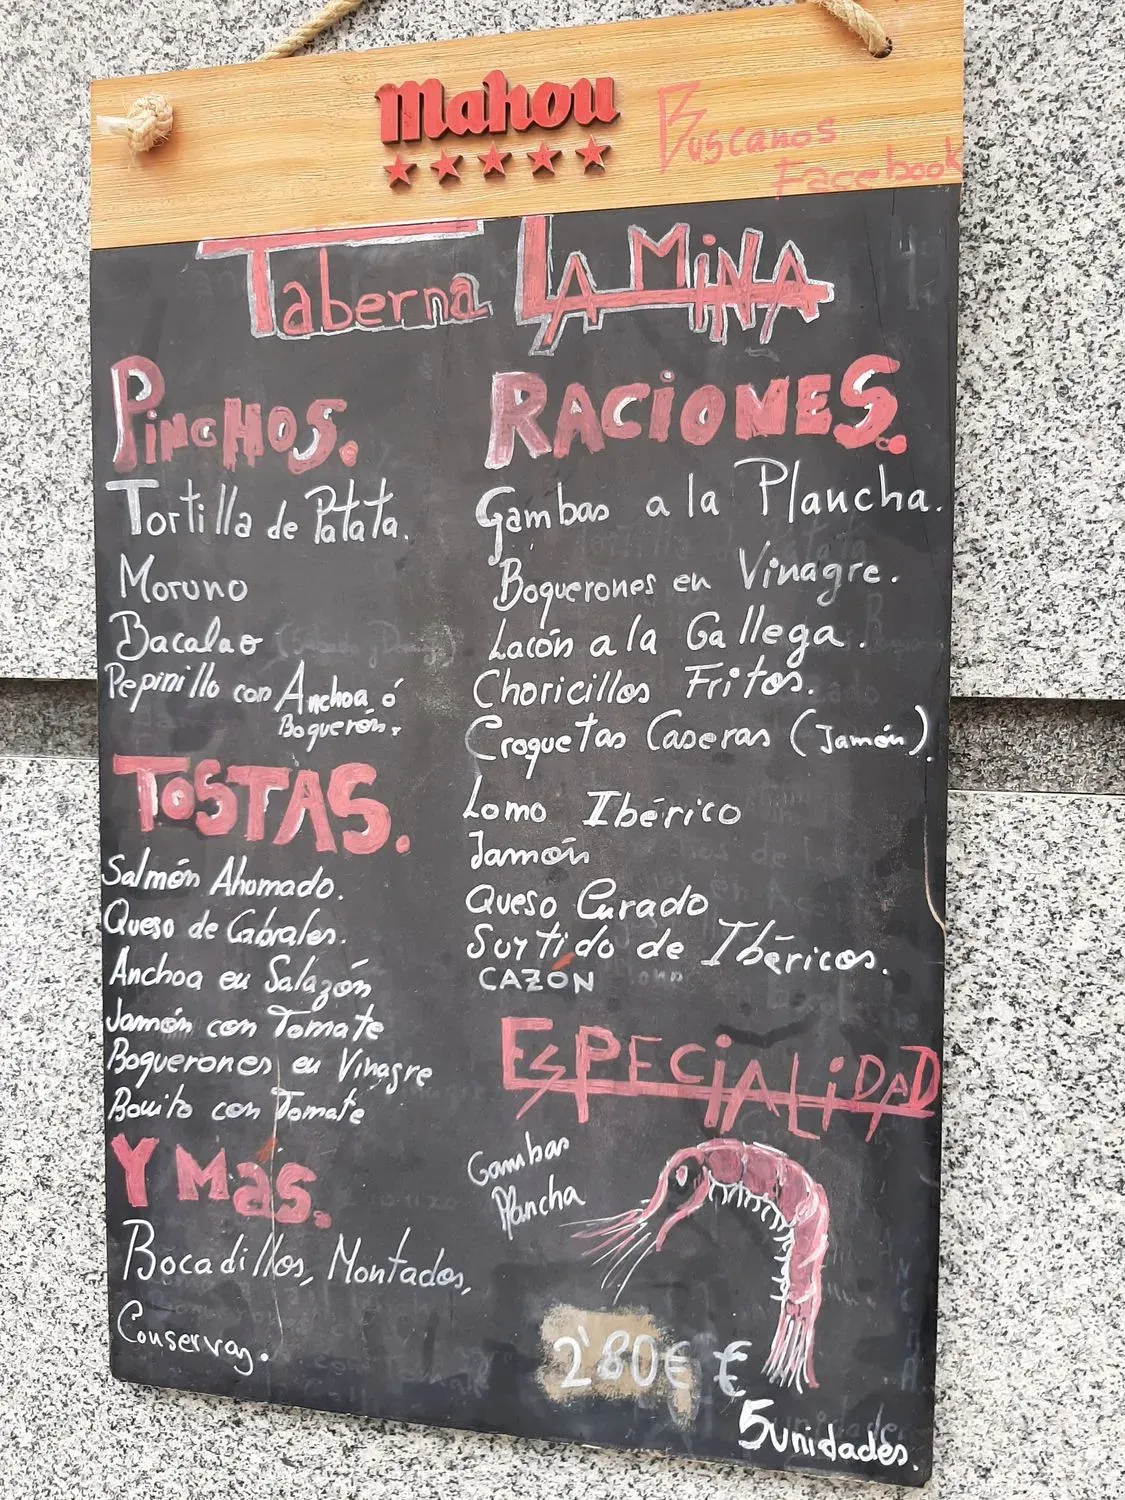 Mahou
Buscanos
Facebook
Taberna LA MiNA
PiNCHOS.
Tortilla de Patata.
Moruno
Bacalao
Pepinillo con Anchoa ó
Boquerón.
TOSTAS.
Salmón Ahumado.
Queso de Cabrales.
Anchoa en Salazón
Jamón con Tomate
Boquerones en Vinagre
Bonito con Tomate
Y Mas.
Bocadillos, Montados,
Conservas.
RACiONES.
Gambas a la Plancha.
Boquerones en Vinagre.
Lacón a la Gallega.
Choricillos Fritos.
Croquetas Caseras (Jamón).
Lomo Ibérico
Jamón
Queso Curado
Surtido de Ibéricos.
CAZÓN
ESPECiALiDAD
Gambas
Plancha
2'80€ €
5 unidades.